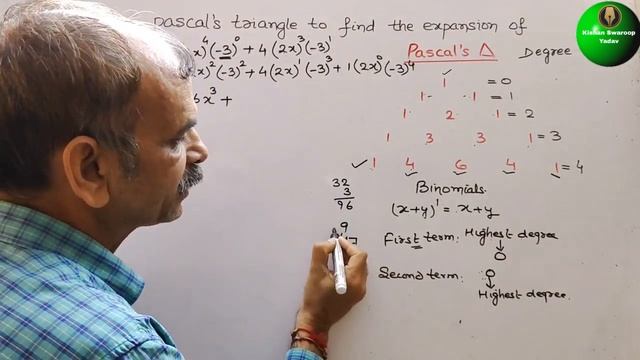 Pascal's triangle to find the expansion of
x)⁴(-3)⁰ + 4(2x)³(-3)¹
x)²(-3)² + 4(2x)¹(-3)³ + 1(2x)⁰(-3)⁴
6x³ +
Pascal's Δ Degree
1 = 0
1 1 = 1
1 2 1 = 2
1 3 3 1 = 3
1 4 6 4 1 = 4
32
3
96
9
Binomials.
(x+y)¹ = x+y
First term: Highest degree
↓
0
Second term: 0
↓
Highest degree.
Kishan Swaroop
Yadav